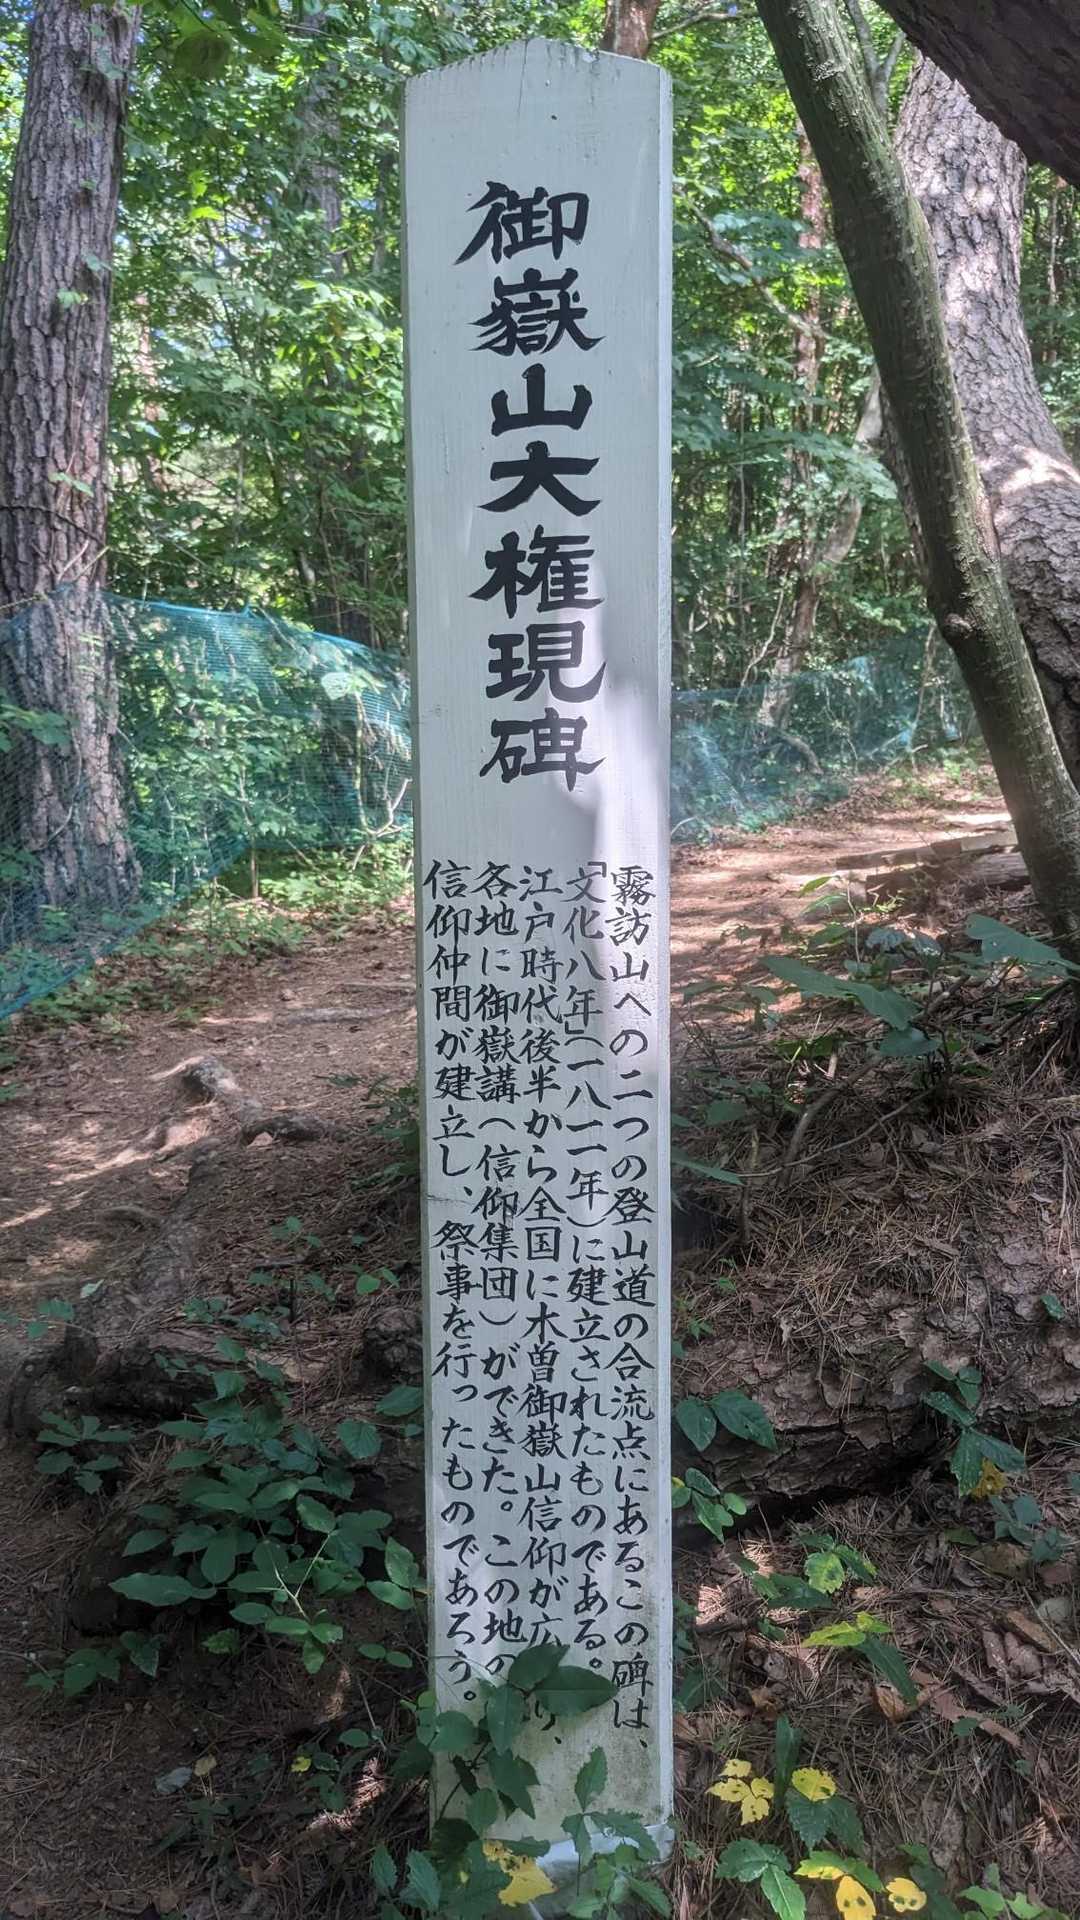 御嶽山大権現碑
霧訪山への二つの登山道の合流点にあるこの碑は、
「文化八年」(一八一一年)に建立されたものである。
江戸時代後半から全国に木曽御嶽山信仰が広り、
各地に御嶽講(信仰集団)ができた。この地の
信仰仲間が建立し、祭事を行ったものであろう。